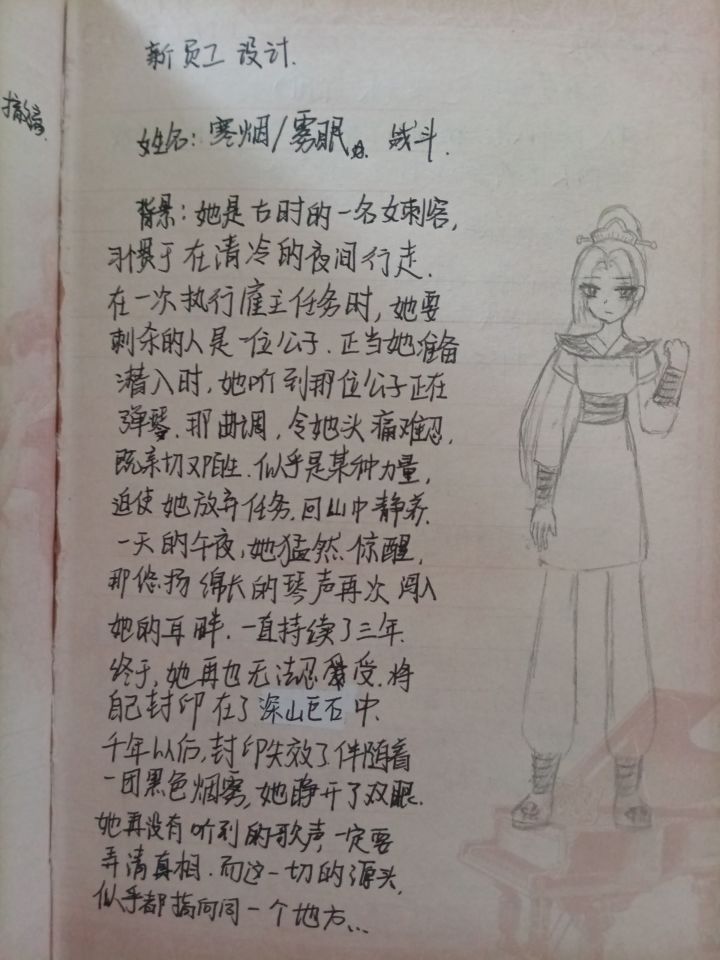 新员工设计.
姓名：寒烟/雾眠 战斗.
背景：她是古时的一名女刺客,
习惯于在清冷的夜间行走.
在一次执行雇主任务时,她要
刺杀的人是一位公子.正当她准备
潜入时,她听到那位公子正在
弹琴.那曲调,令她头痛难忍,
既亲切又陌生.似乎是某种力量,
迫使她放弃任务.回山中静养.
一天的午夜,她猛然惊醒,
那悠扬绵长的琴声再次闯入
她的耳畔.一直持续了三年.
终于,她再也无法忍受.将
自己封印在了深山巨石中.
千年以后,封印失效了.伴随着
一团黑色烟雾,她睁开了双眼.
她再没有听到的歌声,一定要
弄清真相.而这一切的源头,
似乎都指向同一个地方...